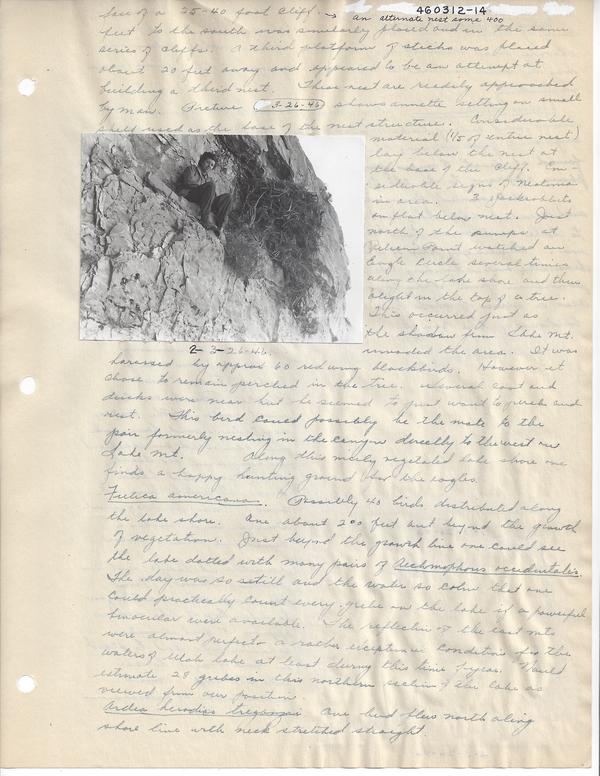 460312-14
face of a 25-40 foot cliff. → an alternate nest some 400
feet to the south was similarly placed and in the same
series of cliffs. A third platform of sticks was placed
about 20 feet away and appeared to be an attempt at
building a third nest. These nest are readily approached
by man. Picture 3-26-46 shows annette setting on small
shelf used as the base of the nest structure. Considerable
material (1/5 of entire nest)
lay below the nest at
the base of the cliff. Con-
siderable signs of Neotoma
in area. 3 Jackrabbits
on flat below nest. Just
north of the pumps at
Pelican Point watched an
Eagle Circle several times
along the lake shore and then
alight in the top of a tree.
This occurred just as
the shadow from Lake Mt.
2- 3-26-46.
invaded the area. It was
harassed by approx 60 redwing blackbirds. However it
chose to remain perched in the tree. Several coot and
ducks were near but he seemed to just want to perch and
rest. This bird could possibly be the mate to the
pair formerly nesting in the canyon directly to the west on
Lake Mt. Along this nicely vegetated lake shore one
finds a happy hunting ground for the eagles.
Fulica americana. Possibly 40 birds distributed along
the lake shore. One about 200 feet out beyond the growth
of vegetation. Just beyond the growth line one could see
the lake dotted with many pairs of Aechmophorus occidentalis.
The day was so still and the water so calm that one
could practically count every grebe on the lake if a powerful
binocular were available. The reflection of the east mts
were almost perfect - a rather exceptional condition for the
waters of Utah Lake at least during this time of year. Would
estimate 28 grebes in this northern section of the lake as
viewed from our position.
Ardea herodias treganzai One bird flew north along
shore line with neck stretched straight.